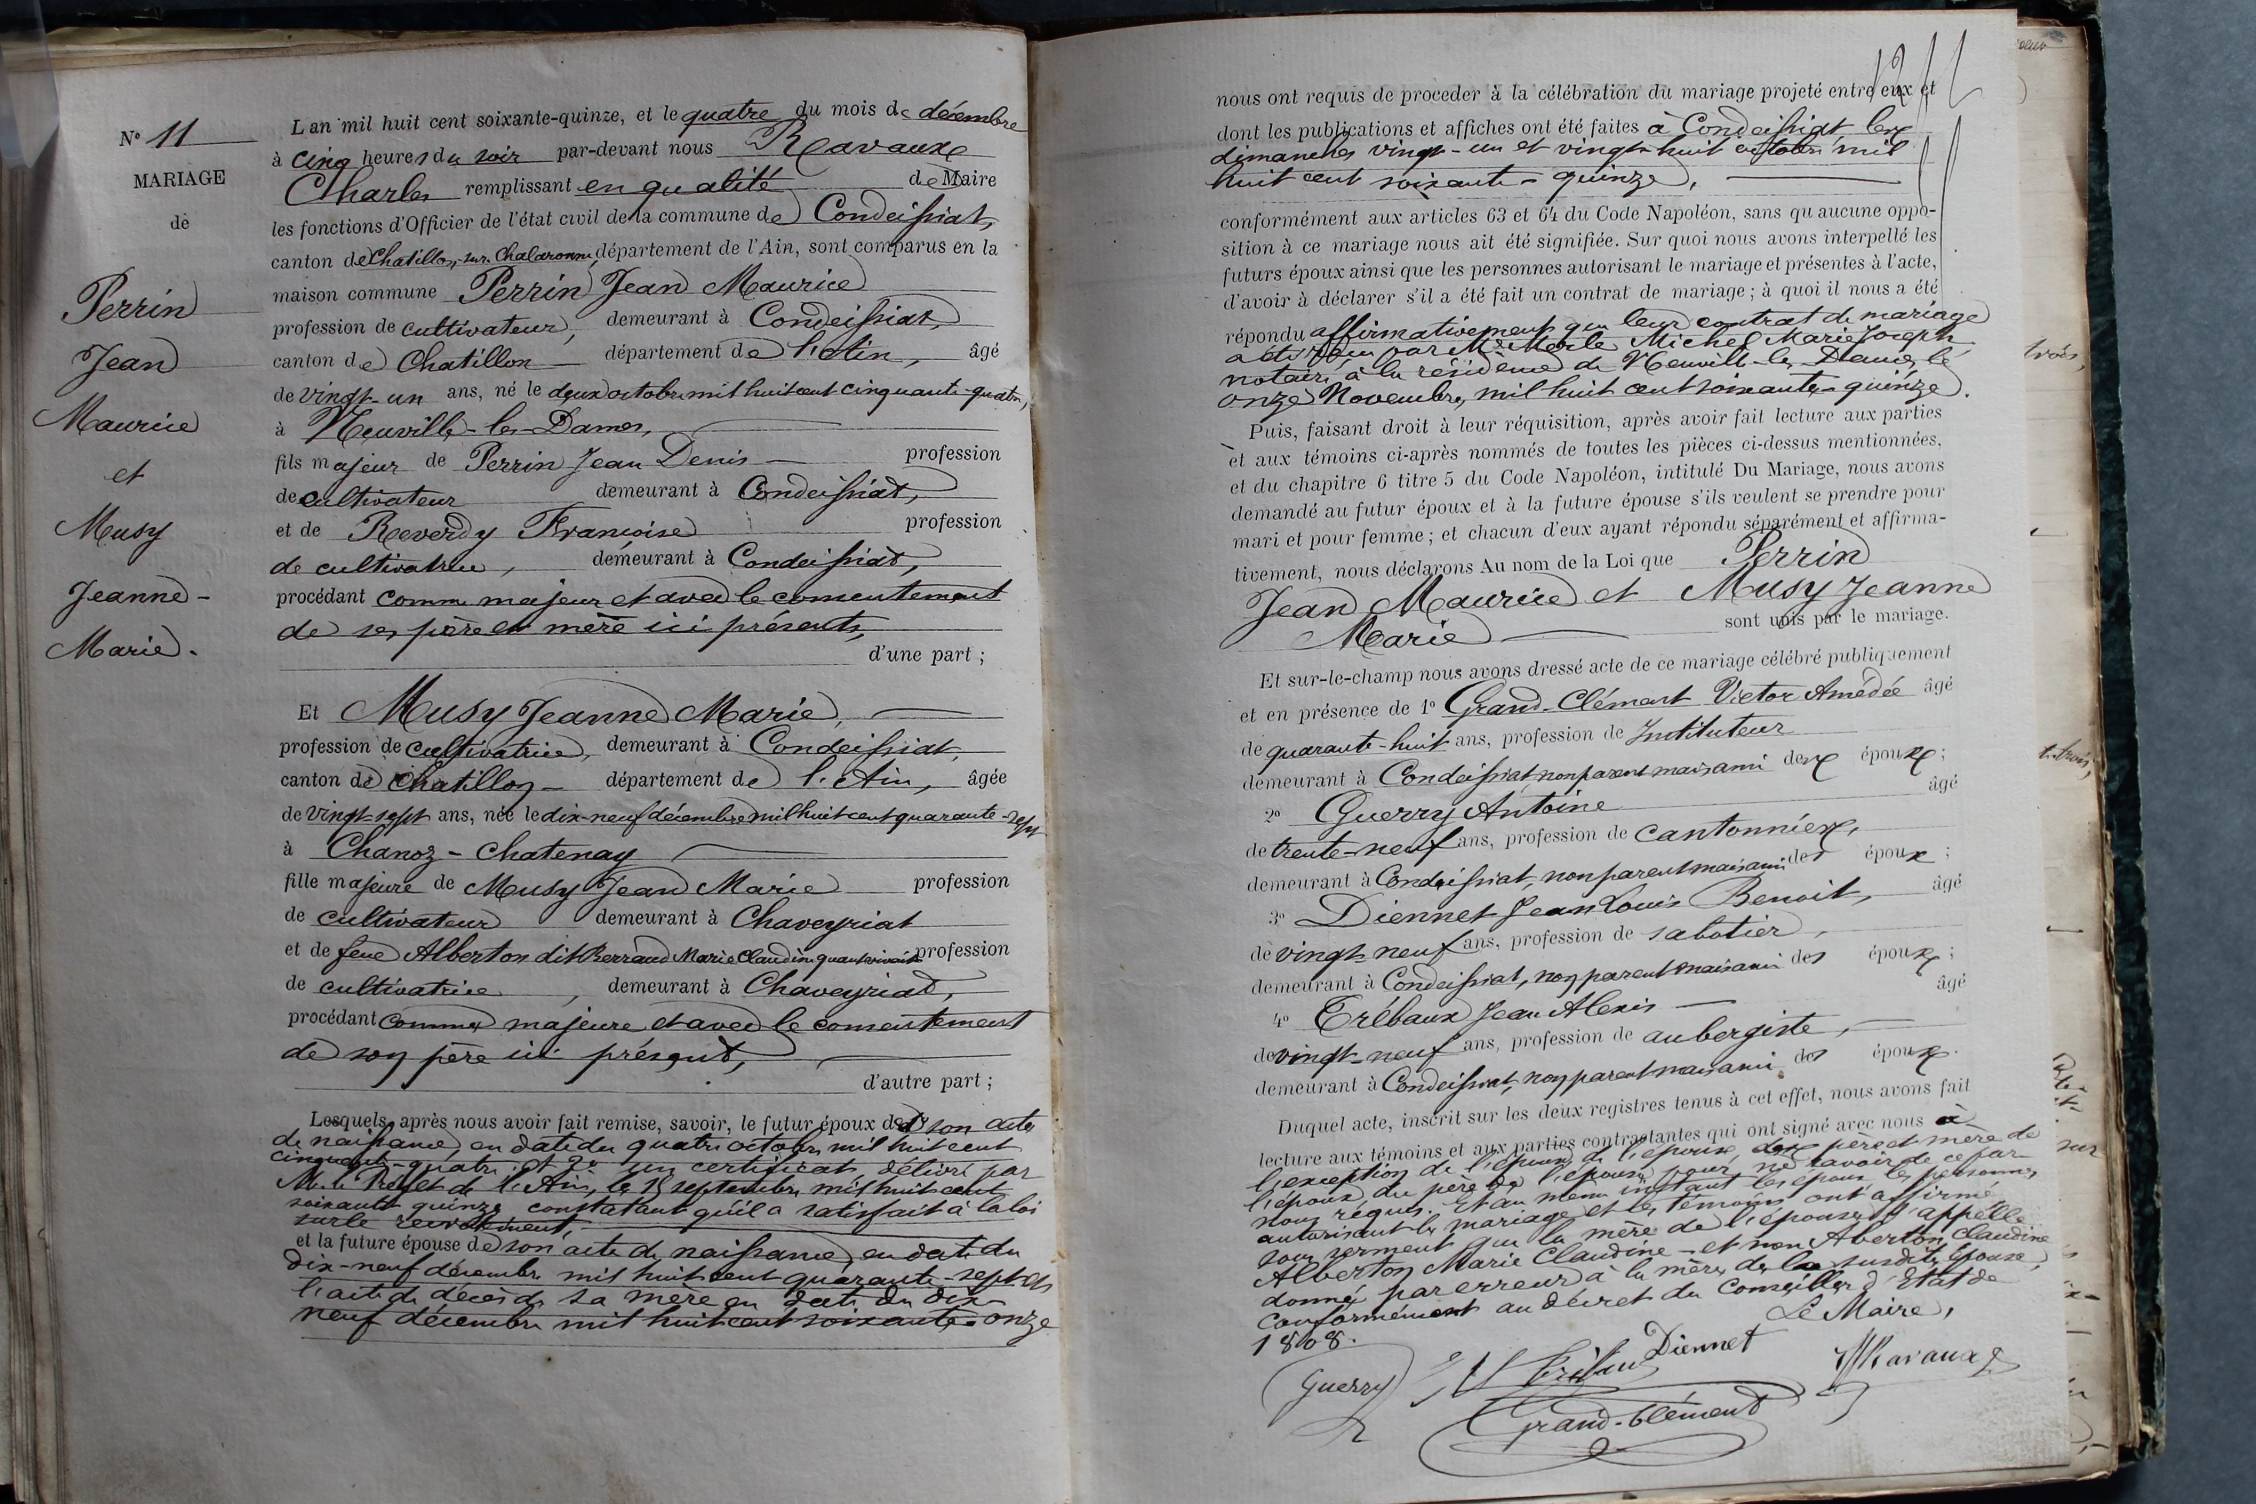 N° 11
MARIAGE
de
Perrin
Jean
Maurice
et
Musy
Jeanne-
Marie.
L'an mil huit cent soixante-quinze, et le quatre du mois de décembre
à cinq heures du soir par-devant nous Ravaux
Charles remplissant en qualité de Maire
les fonctions d'Officier de l'état civil de la commune de Condeissiat,
canton de Chatillon-sur-Chalaronne, département de l'Ain, sont comparus en la
maison commune Perrin Jean Maurice
profession de cultivateur, demeurant à Condeissiat,
canton de Chatillon — département de l'Ain, âgé
de vingt-un ans, né le deux octobre mil huit cent cinquante-quatre,
à Neuville-les-Dames,
fils majeur de Perrin Jean Denis — profession
de cultivateur demeurant à Condeissiat,
et de Reverdy Françoise profession
de cultivatrice, demeurant à Condeissiat,
procédant comme majeur et avec le consentement
de ses père et mère ici présents,
d'une part ;
Et Musy Jeanne Marie, —
profession de cultivatrice, demeurant à Condeissiat,
canton de Chatillon — département de l'Ain, âgée
de vingt-sept ans, née le dix-neuf décembre mil huit cent quarante-sept
à Chanoz-Chatenay
fille majeure de Musy Jean Marie profession
de cultivateur demeurant à Chaveyriat
et de feue Alberton dit Berraud Marie Claudine quant vivait profession
de cultivatrice, demeurant à Chaveyriat,
procédant comme majeure et avec le consentement
de son père ici présent,
d'autre part ;
Lesquels, après nous avoir fait remise, savoir, le futur époux de 1° son acte
de naissance, en date du quatre octobre mil huit cent
cinquante-quatre et 2° un certificat délivré par
M. le Préfet de l'Ain, le 15 septembre mil huit cent
soixante quinze constatant qu'il a satisfait à la loi
sur le recrutement,
et la future épouse de son acte de naissance en date du
dix-neuf décembre mil huit cent quarante-sept et
l'acte de décès de sa mère en date du dix-
neuf décembre mil huit cent soixante-onze
nous ont requis de procéder à la célébration du mariage projeté entre eux et
dont les publications et affiches ont été faites à Condeissiat les
dimanches vingt-un et vingt-huit octobre mil
huit cent soixante-quinze, —
conformément aux articles 63 et 64 du Code Napoléon, sans qu'aucune oppo-
sition à ce mariage nous ait été signifiée. Sur quoi nous avons interpellé les
futurs époux ainsi que les personnes autorisant le mariage et présentes à l'acte,
d'avoir à déclarer s'il a été fait un contrat de mariage ; à quoi il nous a été
répondu affirmativement que leur contrat de mariage
a été reçu par Me Merle Michel Marie Joseph,
notaire à la résidence de Neuville-les-Dames, le
onze Novembre, mil huit cent soixante-quinze.
Puis, faisant droit à leur réquisition, après avoir fait lecture aux parties
et aux témoins ci-après nommés de toutes les pièces ci-dessus mentionnées,
et du chapitre 6 titre 5 du Code Napoléon, intitulé Du Mariage, nous avons
demandé au futur époux et à la future épouse s'ils veulent se prendre pour
mari et pour femme ; et chacun d'eux ayant répondu séparément et affirma-
tivement, nous déclarons Au nom de la Loi que Perrin
Jean Maurice et Musy Jeanne
Marie — sont unis par le mariage.
Et sur-le-champ nous avons dressé acte de ce mariage célébré publiquement
et en présence de 1° Grand-Clément Victor Amédée âgé
de quarante-huit ans, profession de Instituteur
demeurant à Condeissiat, non parent mais ami des époux ;
2° Guerry Antoine âgé
de trente-neuf ans, profession de cantonnier,
demeurant à Condeissiat, non parent mais ami des époux ;
3° Diennet Jean Louis Benoit, âgé
de vingt-neuf ans, profession de sabotier,
demeurant à Condeissiat, non parent mais ami des époux ;
4° Trébaux Jean Alexis — âgé
de vingt-neuf ans, profession de aubergiste, —
demeurant à Condeissiat, non parent mais ami des époux.
Duquel acte, inscrit sur les deux registres tenus à cet effet, nous avons fait
lecture aux témoins et aux parties contractantes qui ont signé avec nous à
l'exception de l'époux, de l'épouse, des père et mère de
l'époux, du père de l'épouse pour ne savoir de ce par
nous requis. Et au même instant les époux, les personnes
autorisant le mariage et les témoins ont affirmé
sous serment que la mère de l'épouse s'appelle
Alberton Marie Claudine — et non Aberton Claudine
donné par erreur à la mère de la susdite épouse,
conformément au décret du Conseiller d'Etat de
1808. Le Maire,
Guerry Trébaux Diennet Ravaux
Grand-Clément